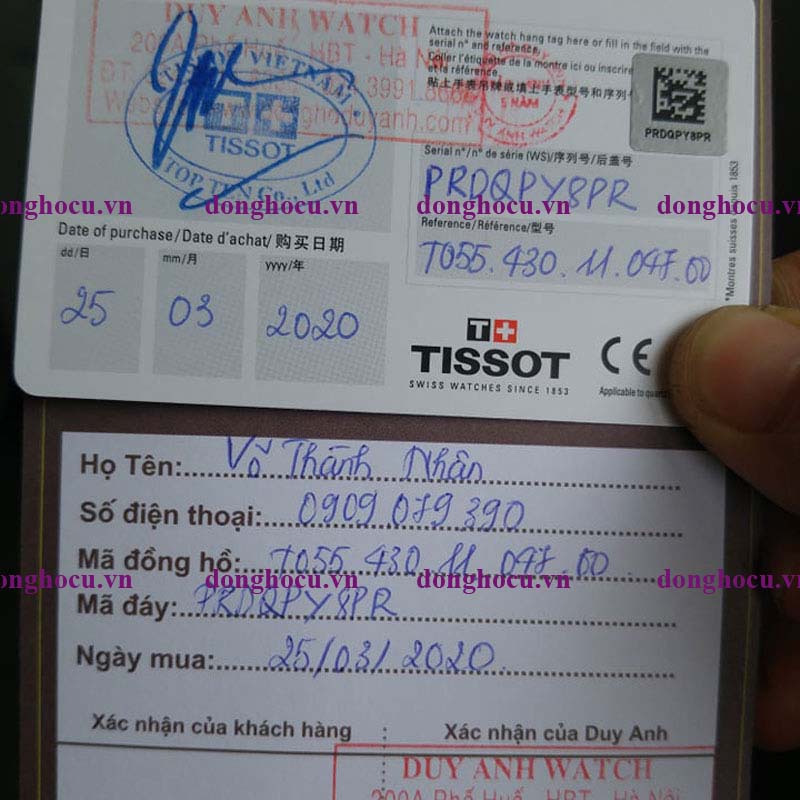 DUY ANH WATCH
200A Phố Huế - HBT - Hà Nội
Attach the watch hang tag here or fill in the field with the
serial n° and reference.
Coller l'étiquette de la montre ici ou inscrire
et la référence.
贴上手表吊牌或填上手表型号和序列号
VIETNAM
TISSOT
TOP TEN Co., Ltd
3991
donghoduyanh.com
5 NĂM
DUY ANH WATCH
PRDQPY8PR
Serial n°/n° de série (WS)/序列号/后盖号
PRDQPY8PR
donghocu.vn donghocu.vn donghocu.vn donghocu.vn
Reference/Référence/型号
T055.430.11.047.00
*Montres suisses depuis 1853
Date of purchase/Date d'achat/购买日期
dd/日 mm/月 yyyy/年
25 03 2020
T+
TISSOT
SWISS WATCHES SINCE 1853
CE
Applicable to
donghocu.vn donghocu.vn donghocu.vn donghocu.vn
Họ Tên: Võ Thành Nhân
Số điện thoại: 0909.079.390
Mã đồng hồ: T055.430.11.047.00
donghocu.vn donghocu.vn donghocu.vn donghocu.vn
Mã đáy: PRDQPY8PR
Ngày mua: 25/03/2020
Xác nhận của khách hàng : Xác nhận của Duy Anh
DUY ANH WATCH
200A Phố Huế - HBT - Hà Nội